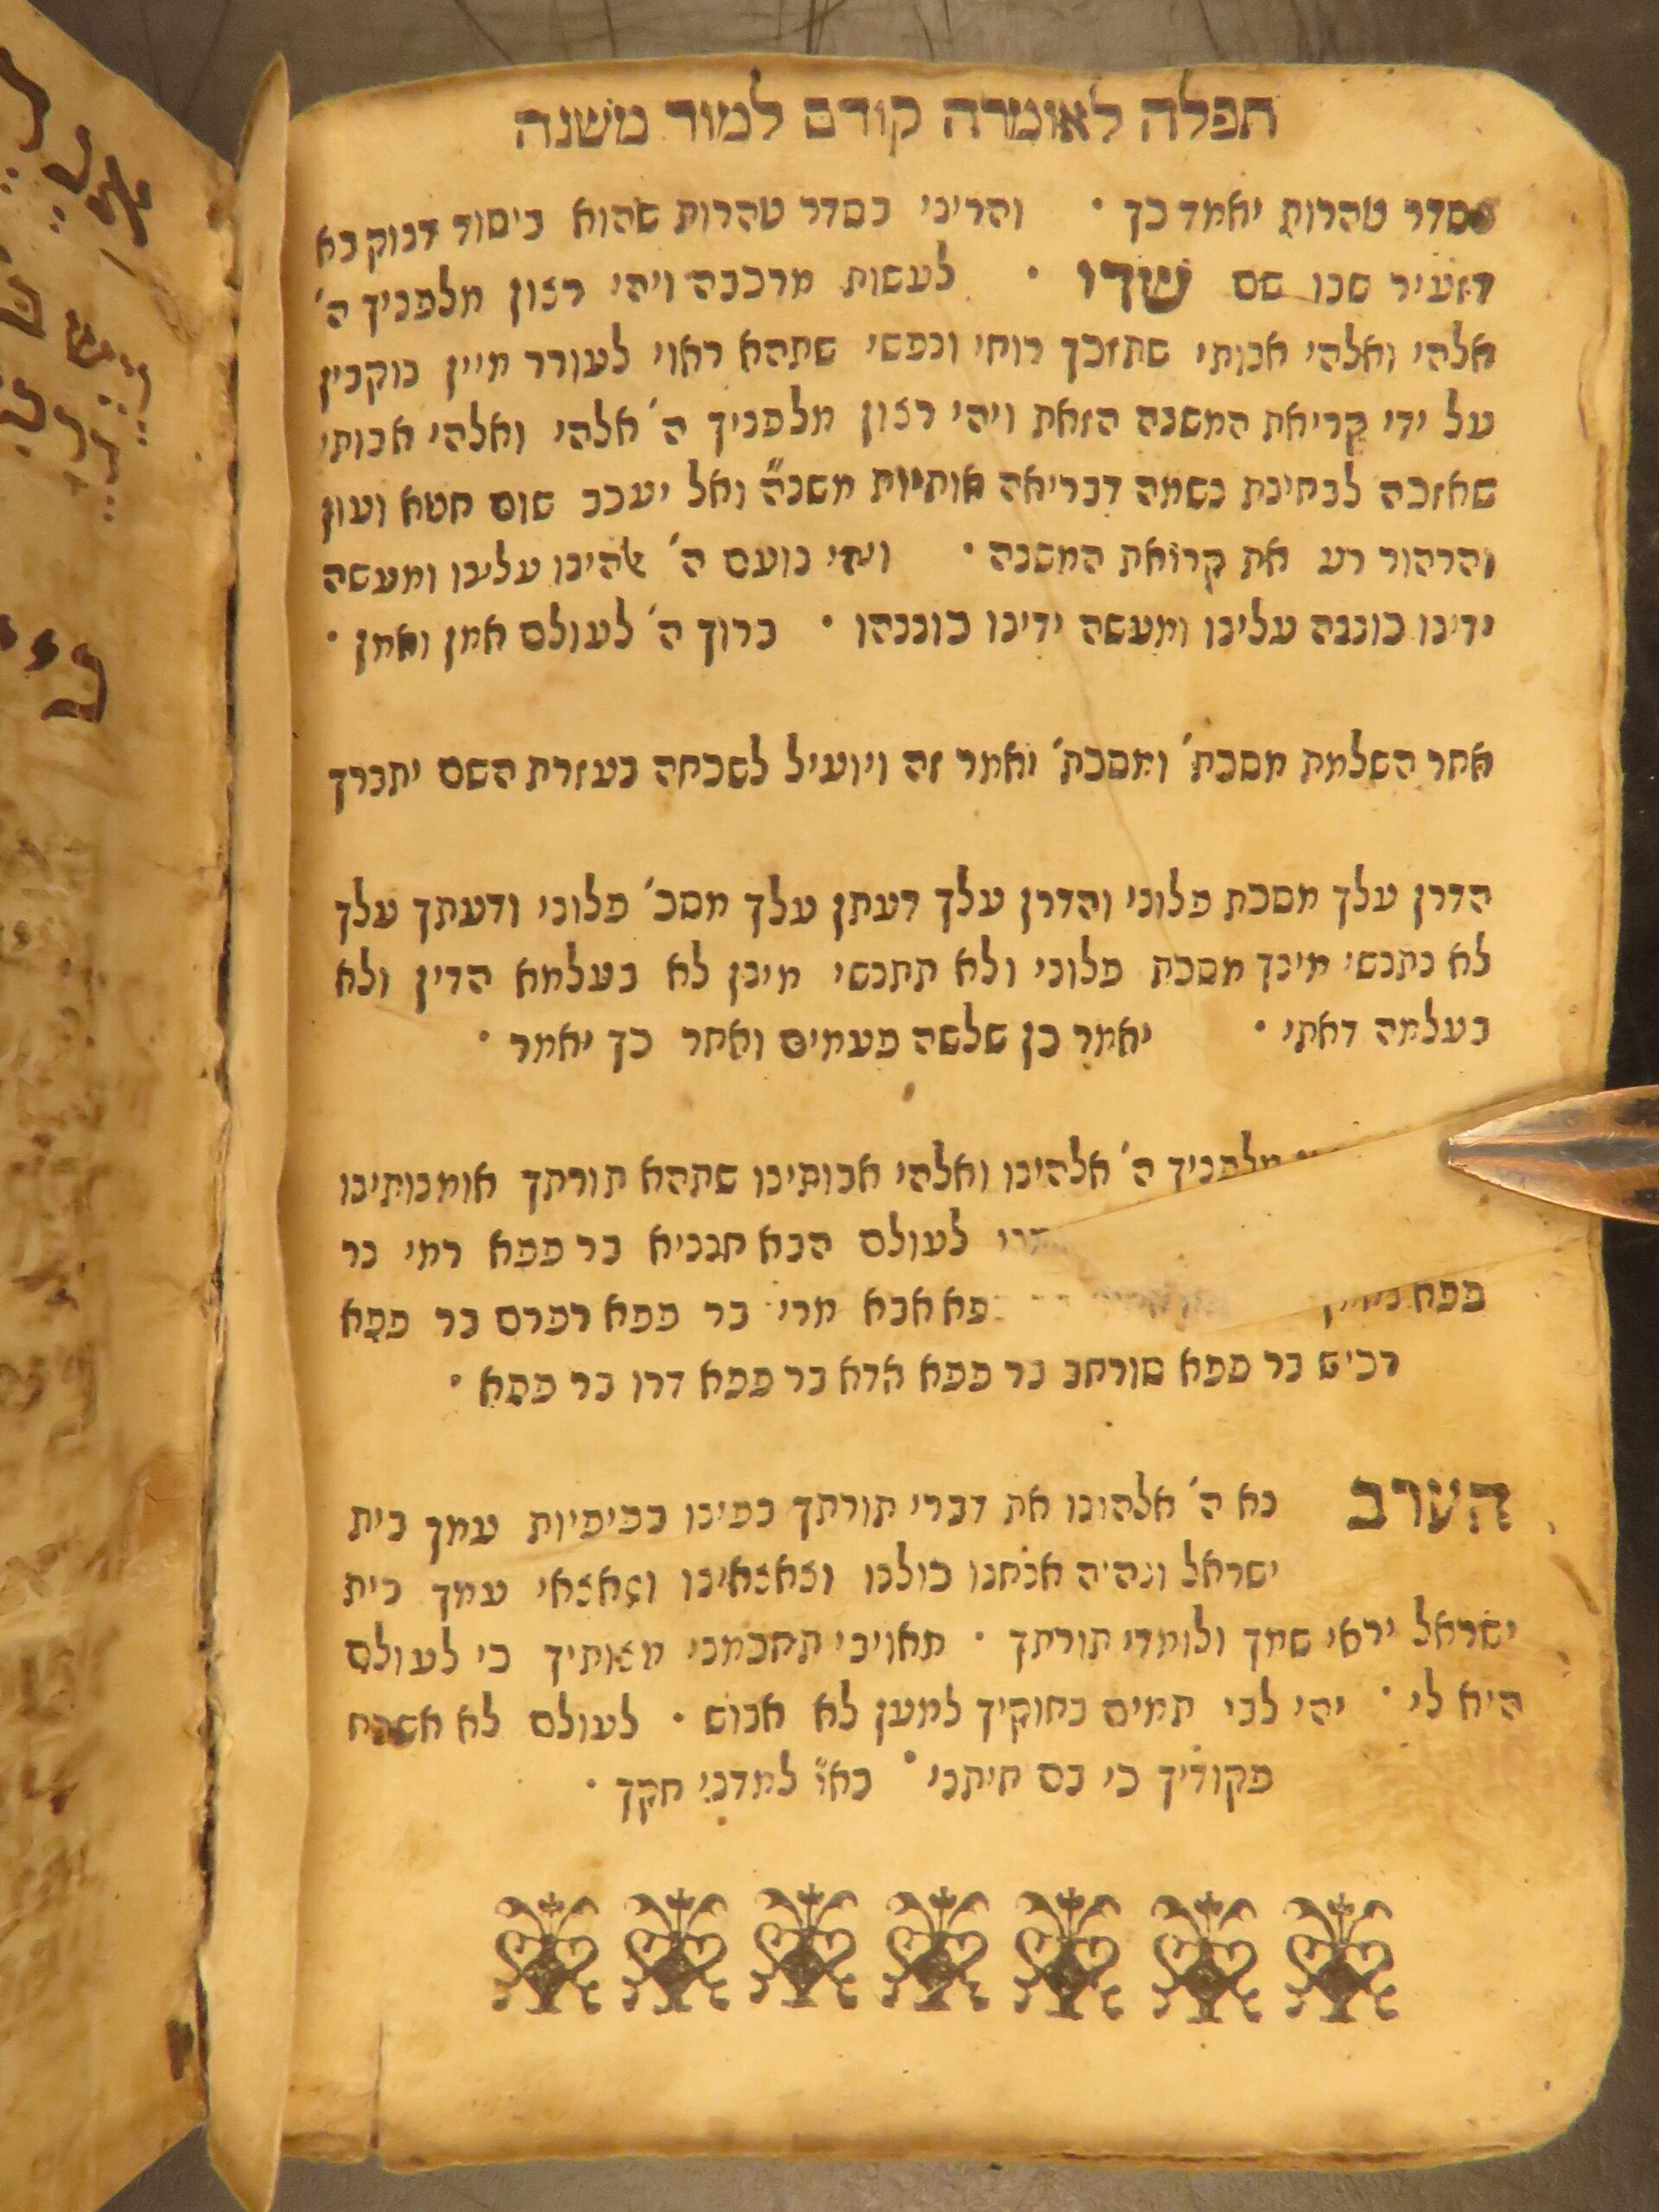 תפלה לאומרה קודם למוד משנה
בסדר טהרות יאמר כך · והריני בסדר טהרות שהוא ביסוד דנוקבא
דזעיר שבו שם שדי · לעשות מרכבה ויהי רצון מלפניך ה'
אלהי ואלהי אבותי שתזכך רוחי ונפשי שתהא ראוי לעורר מיין נוקבין
על ידי קריאת המשנה הזאת ויהי רצון מלפניך ה' אלהי ואלהי אבותי
שאזכה לבחינת נשמה דבריאה אותיות משנ"ה ואל יעכב שום חטא ועון
והרהור רע את קרואת המשנה · ויהי נועם ה' אלהינו עלינו ומעשה
ידינו כוננה עלינו ומעשה ידינו כוננהו · ברוך ה' לעולם אמן ואמן ·
אחר השלמת מסכת' ומסכת' יאמר זה ויועיל לשכחה בעזרת השם יתברך
הדרן עלך מסכת פלוני והדרן עלך דעתן עלך מסכ' פלוני ודעתך עלך
לא נתנשי מינך מסכת פלוני ולא תתנשי מינן לא בעלמא הדין ולא
בעלמה דאתי · יאמר כן שלשה פעמים ואחר כך יאמר ·
מלפניך ה' אלהינו ואלהי אבותינו שתהא תורתך אומנותינו
לעולם הבא חנניא בר פפא רמי בר
פפא אבא מרי בר פפא רפרם בר פפא
רכיש בר פפא סורחב בר פפא אדא בר פפא דרו בר פפא ·
הערב נא ה' אלהינו את דברי תורתך בפינו בפיפיות עמך בית
ישראל ונהיה אנחנו כולנו וצאצאינו וצאצאי עמך בית
ישראל יראי שמך ולומדי תורתך · מאויבי תחכמני מצותיך כי לעולם
היא לי · יהי לבי תמים בחוקיך למען לא אבוש · לעולם לא אשכח
פקודיך כי בם חיתני · בא"י למדני חקך ·